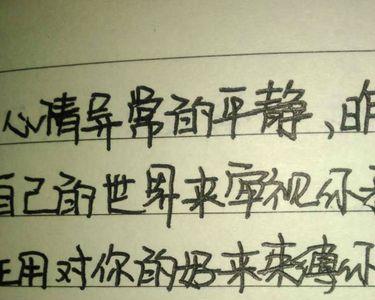 心情异常的平静、昨
自己的世界来审视你
在用对你的好来来缚你